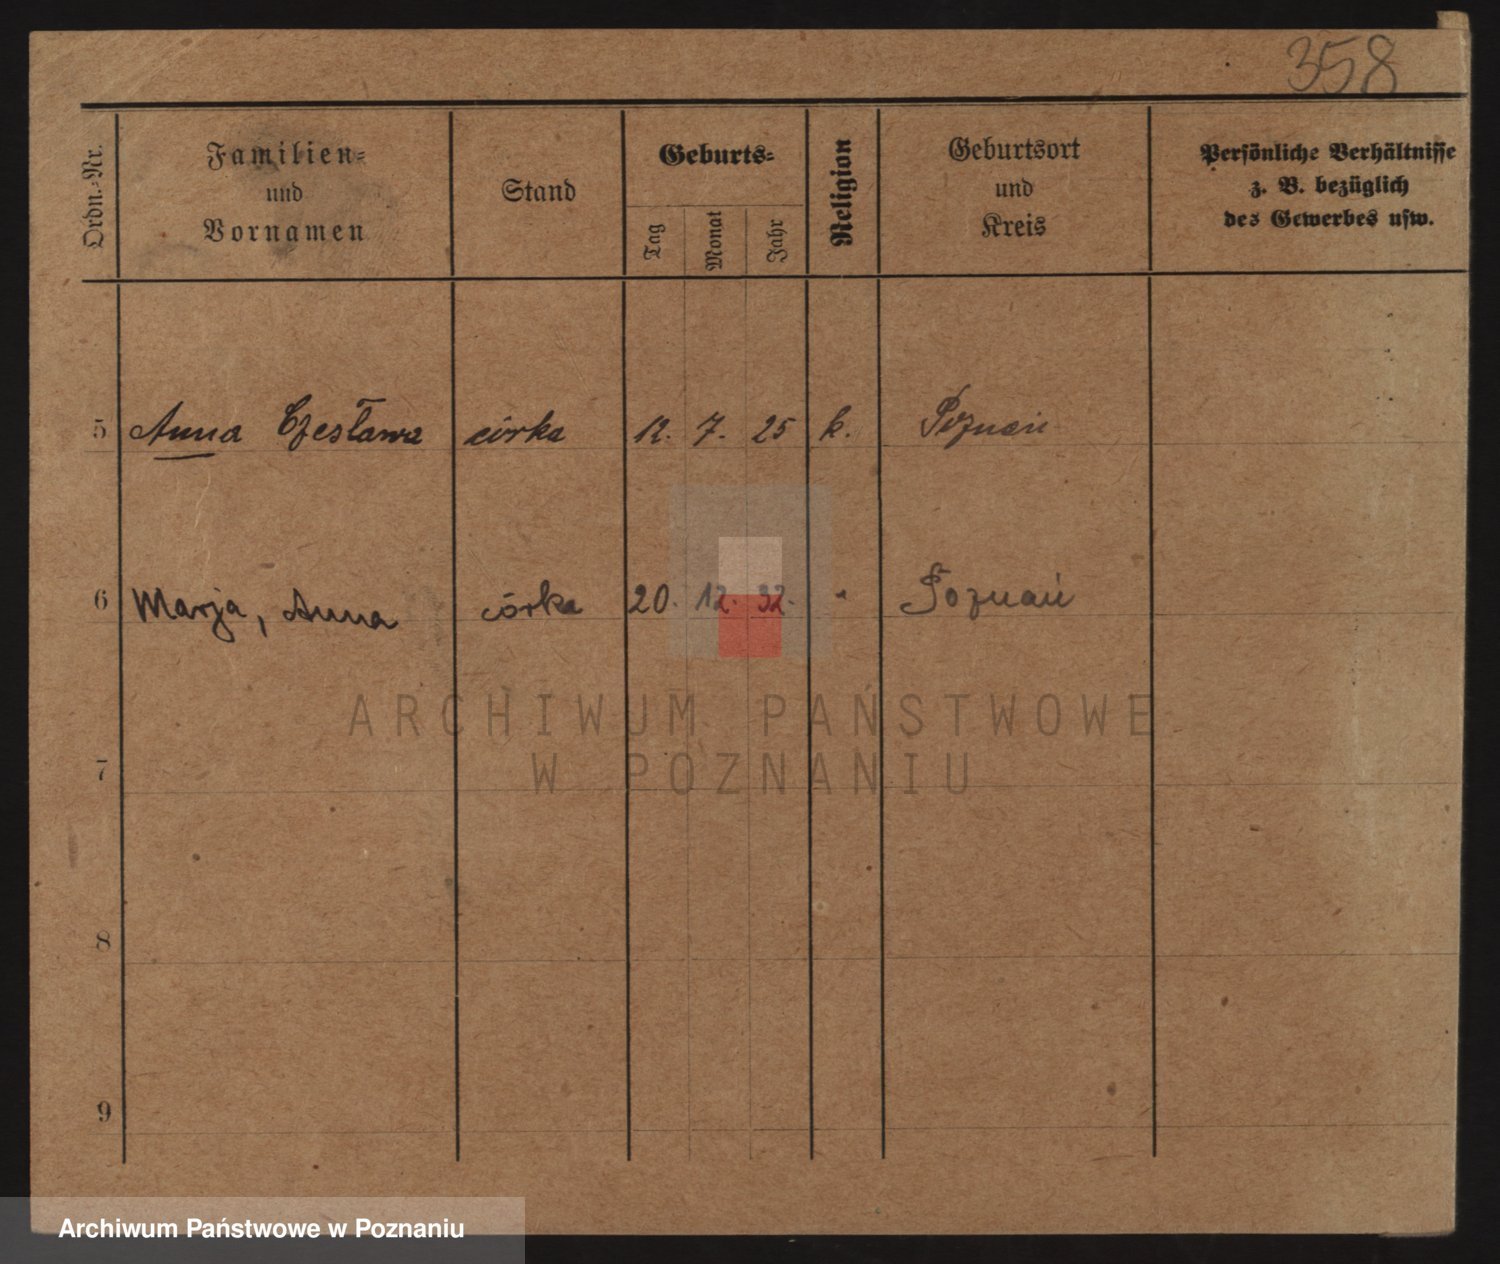 358
Ordn.-Nr.
Familien-
und
Vornamen
Stand
Geburts-
Tag
Monat
Jahr
Religion
Geburtsort
und
Kreis
Persönliche Verhältnisse
z. B. bezüglich
des Gewerbes usw.
5 Anna Czesława córka 12. 7. 25 k. Poznań
6 Marja, Anna córka 20. 12. 32. " Poznań
ARCHIWUM PAŃSTWOWE
W POZNANIU
7
8
9
Archiwum Państwowe w Poznaniu